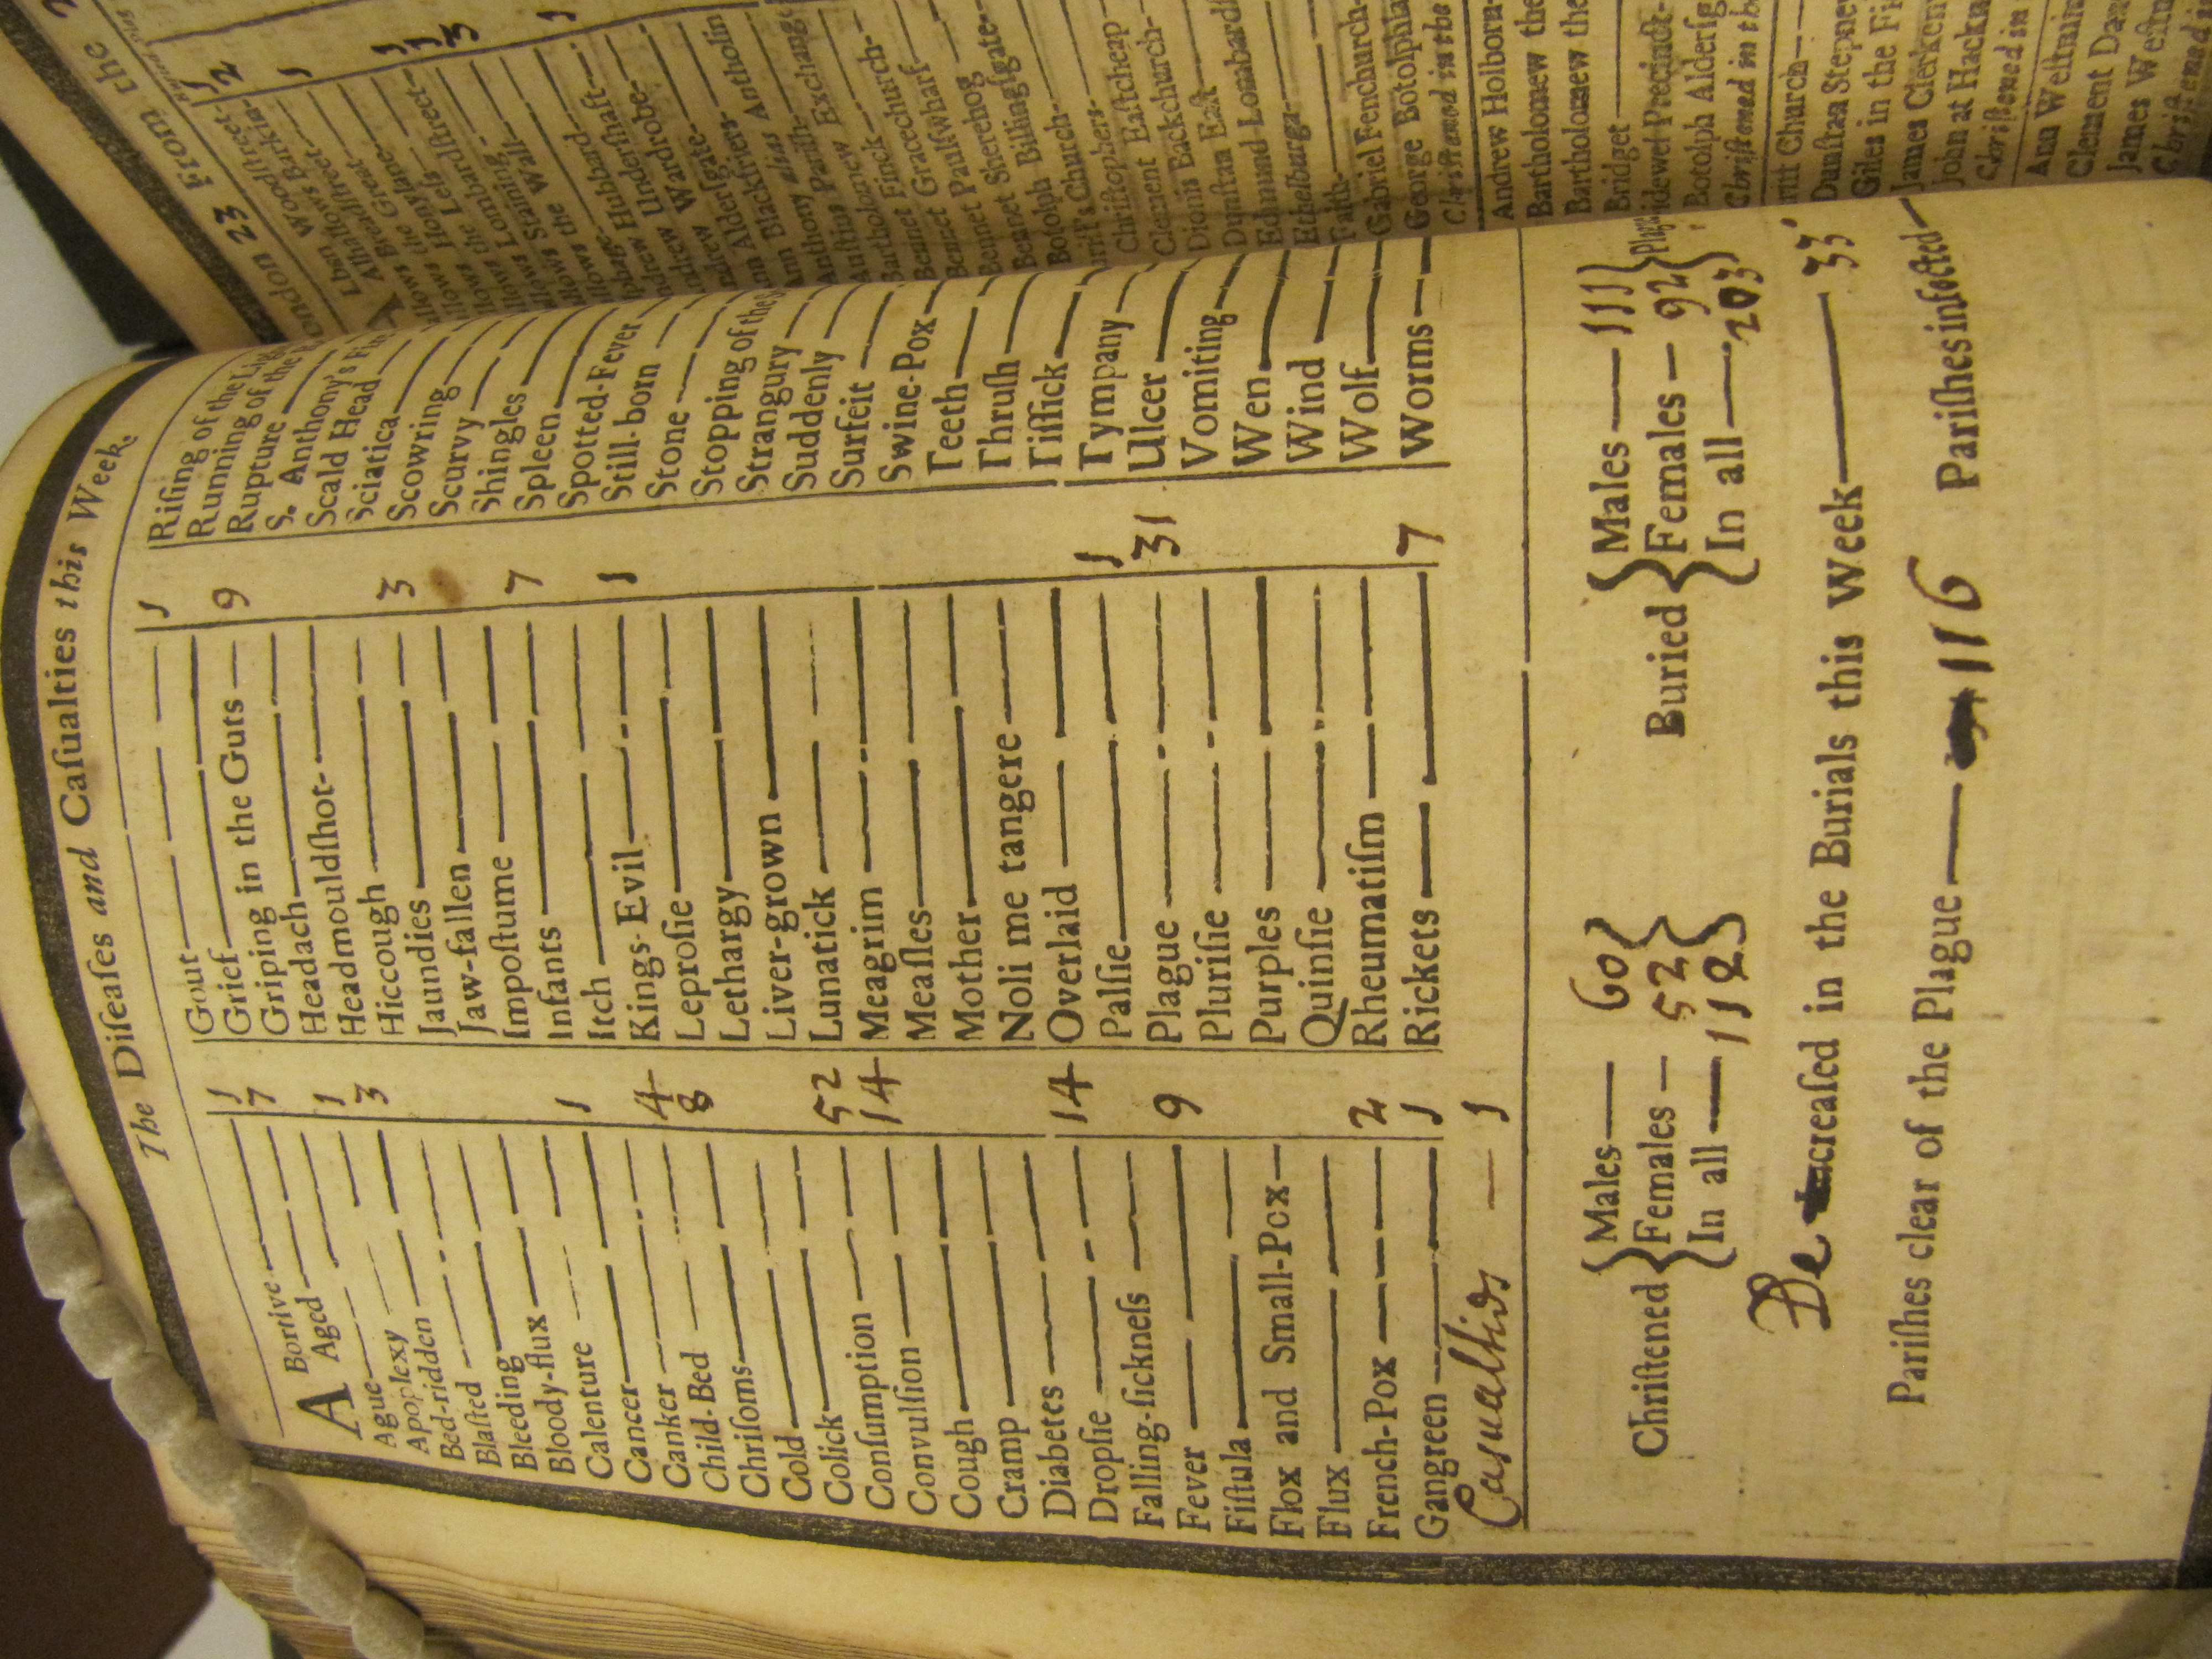 The Diſeaſes and Caſualties this Week.
Abortive 1
Aged 7
Ague
Apoplexy 1
Bed-ridden 3
Blaſted
Bleeding
Bloody-flux
Calenture
Cancer 1
Canker
Child-Bed 4
Chriſoms 8
Cold
Colick
Conſumption 52
Convulſion 14
Cough
Cramp
Diabetes
Dropſie 14
Falling-ſickneſs
Fever 9
Fiſtula
Flox and Small-Pox
Flux
French-Pox 2
Gangreen 1
Casualtids 1
Gout 1
Grief
Griping in the Guts 9
Headach
Headmouldſhot
Hiccough
Jaundies 3
Jaw-fallen
Impoſtume
Infants 7
Itch
Kings-Evil 1
Leproſie
Lethargy
Liver-grown
Lunatick
Meagrim
Meaſles
Mother
Noli me tangere
Overlaid
Palſie 1
Plague 31
Pluriſie
Purples
Quinſie
Rheumatiſm
Rickets 7
Riſing of the
Running of the
Rupture
S. Anthony's
Scald Head
Sciatica
Scowring
Scurvy
Shingles
Spleen
Spotted-Fever
Still-born
Stone
Stopping of the
Strangury
Suddenly
Surfeit
Swine-Pox
Teeth
Thruſh
Tiſſick
Tympany
Ulcer
Vomiting
Wen
Wind
Wolf
Worms
Chriſtened { Males 60 Females 52 In all 112 }
Buried { Males 111 Females 92 In all 203 }
Decreaſed in the Burials this Week 33
Pariſhes clear of the Plague 116 Pariſhes infected
23 From the
Woodſtreet
Barkin
Breadſtreet
Great
Honylane
Lombardſtreet
Staining
the Wall
Hubbard
Underſhaft
Wardrobe
Alderſgate
Blackfriers
alias Antholin
Pariſh
Exchange
Bartholomew
Bennet Finck
Bennet Gracechurch
Bennet Paulſwharf
Bennet Sherehog
Botolph Billingſgate
Church
Chriſtophers
Clement Eaſtcheap
Dionis Backchurch
Dunſtan Eaſt
Edmund Lombard
Ethelburga
Faith
Gabriel Fenchurch
George Botolphla
Chriſtened in the
Andrew Holborn
Bartholomew the
Bartholomew the
Bridget
Precinct
Botolph Alderſg
Chriſtened in th
Church
Dunſtan Stepney
Giles in the Fi
James Clerken
John at Hackn
Chriſtened in
Ann Weſtmin
Clement Da
James Weſtm